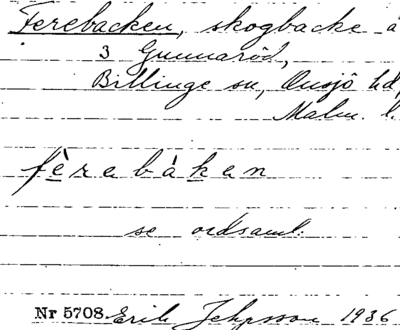 Ferebacken, skogbacke å
3 Gunnaröd,
Billinge sn, Onsjö hd,
Malm. l.
fèrebàken
se ordsaml.
Nr 5708 Erik Jeppsson 1936